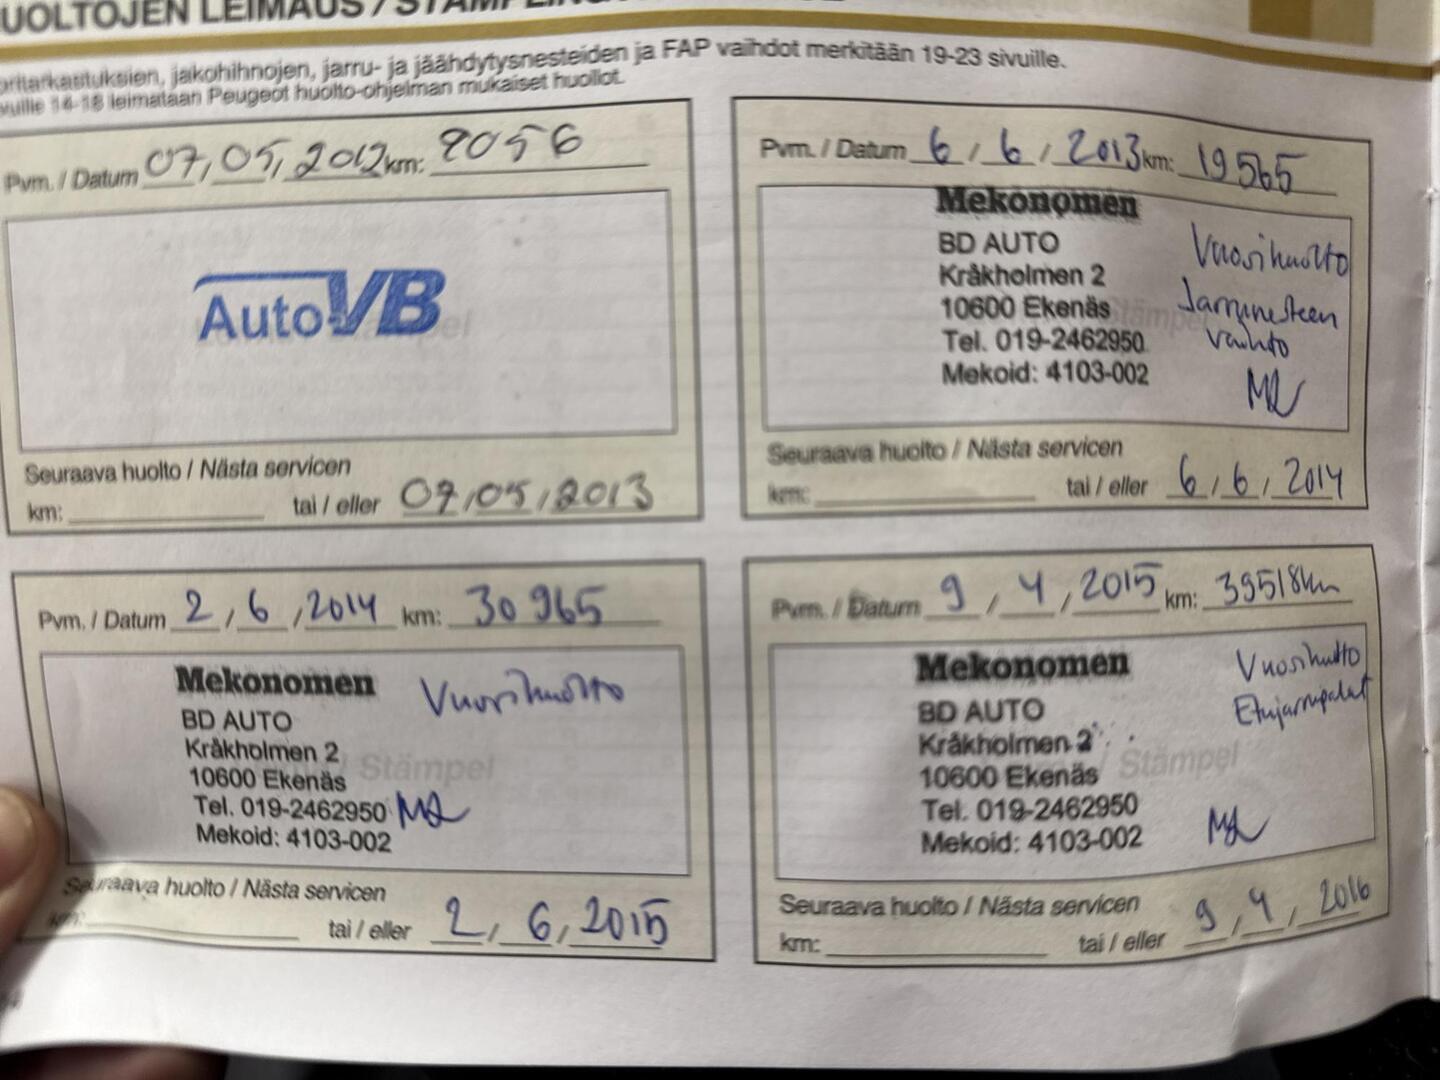 UOLTOJEN LEIMAUS /
jakohihnojen, jarru- ja jäähdytysnesteiden ja FAP vaihdot merkitään 19-23 sivuille.
14-18 leimataan Peugeot huolto-ohjelman mukaiset huollot.
Pvm. / Datum 07,05,2012 km: 9056
AutoVB
Seuraava huolto / Nästa servicen
km: tai / eller 07,05,2013
Pvm. / Datum 6 / 6 / 2013 km: 19565
Mekonomen
BD AUTO
Kråkholmen 2
10600 Ekenäs
Tel. 019-2462950
Mekoid: 4103-002
Vuosihuolto
Jarrunesteen
vaihto
Stämpel
Seuraava huolto / Nästa servicen
km: tai / eller 6 / 6 / 2014
Pvm. / Datum 2 / 6 / 2014 km: 30965
Mekonomen
BD AUTO
Kråkholmen 2
10600 Ekenäs
Tel. 019-2462950
Mekoid: 4103-002
Vuosihuolto
Stämpel
Seuraava huolto / Nästa servicen
km: tai / eller 2, 6, 2015
Pvm. / Datum 9 / 4 / 2015 km: 39518km
Mekonomen
BD AUTO
Kråkholmen 2
10600 Ekenäs
Tel. 019-2462950
Mekoid: 4103-002
Vuosihuolto
Etujarrupalat
Stämpel
Seuraava huolto / Nästa servicen
km: tai / eller 9, 4, 2016